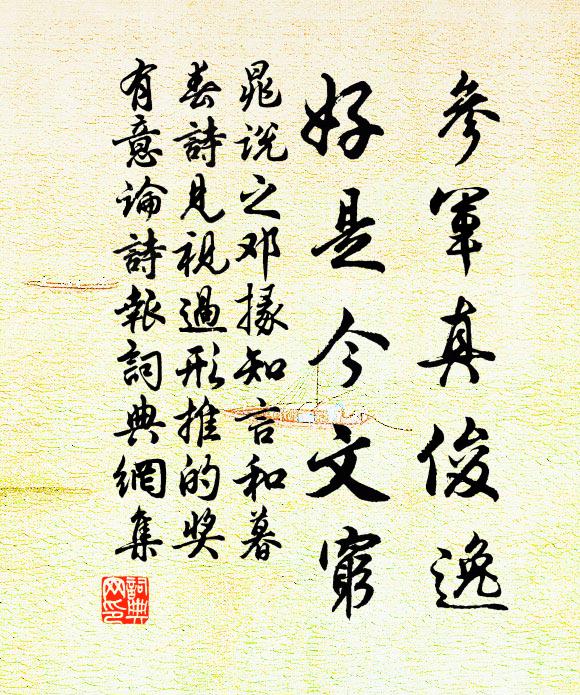 參軍真俊逸
好是今文窮
晁說之邓掾知言和暮
春詩見視過形推的奖
有意論詩報詞典網集
詞典
网印